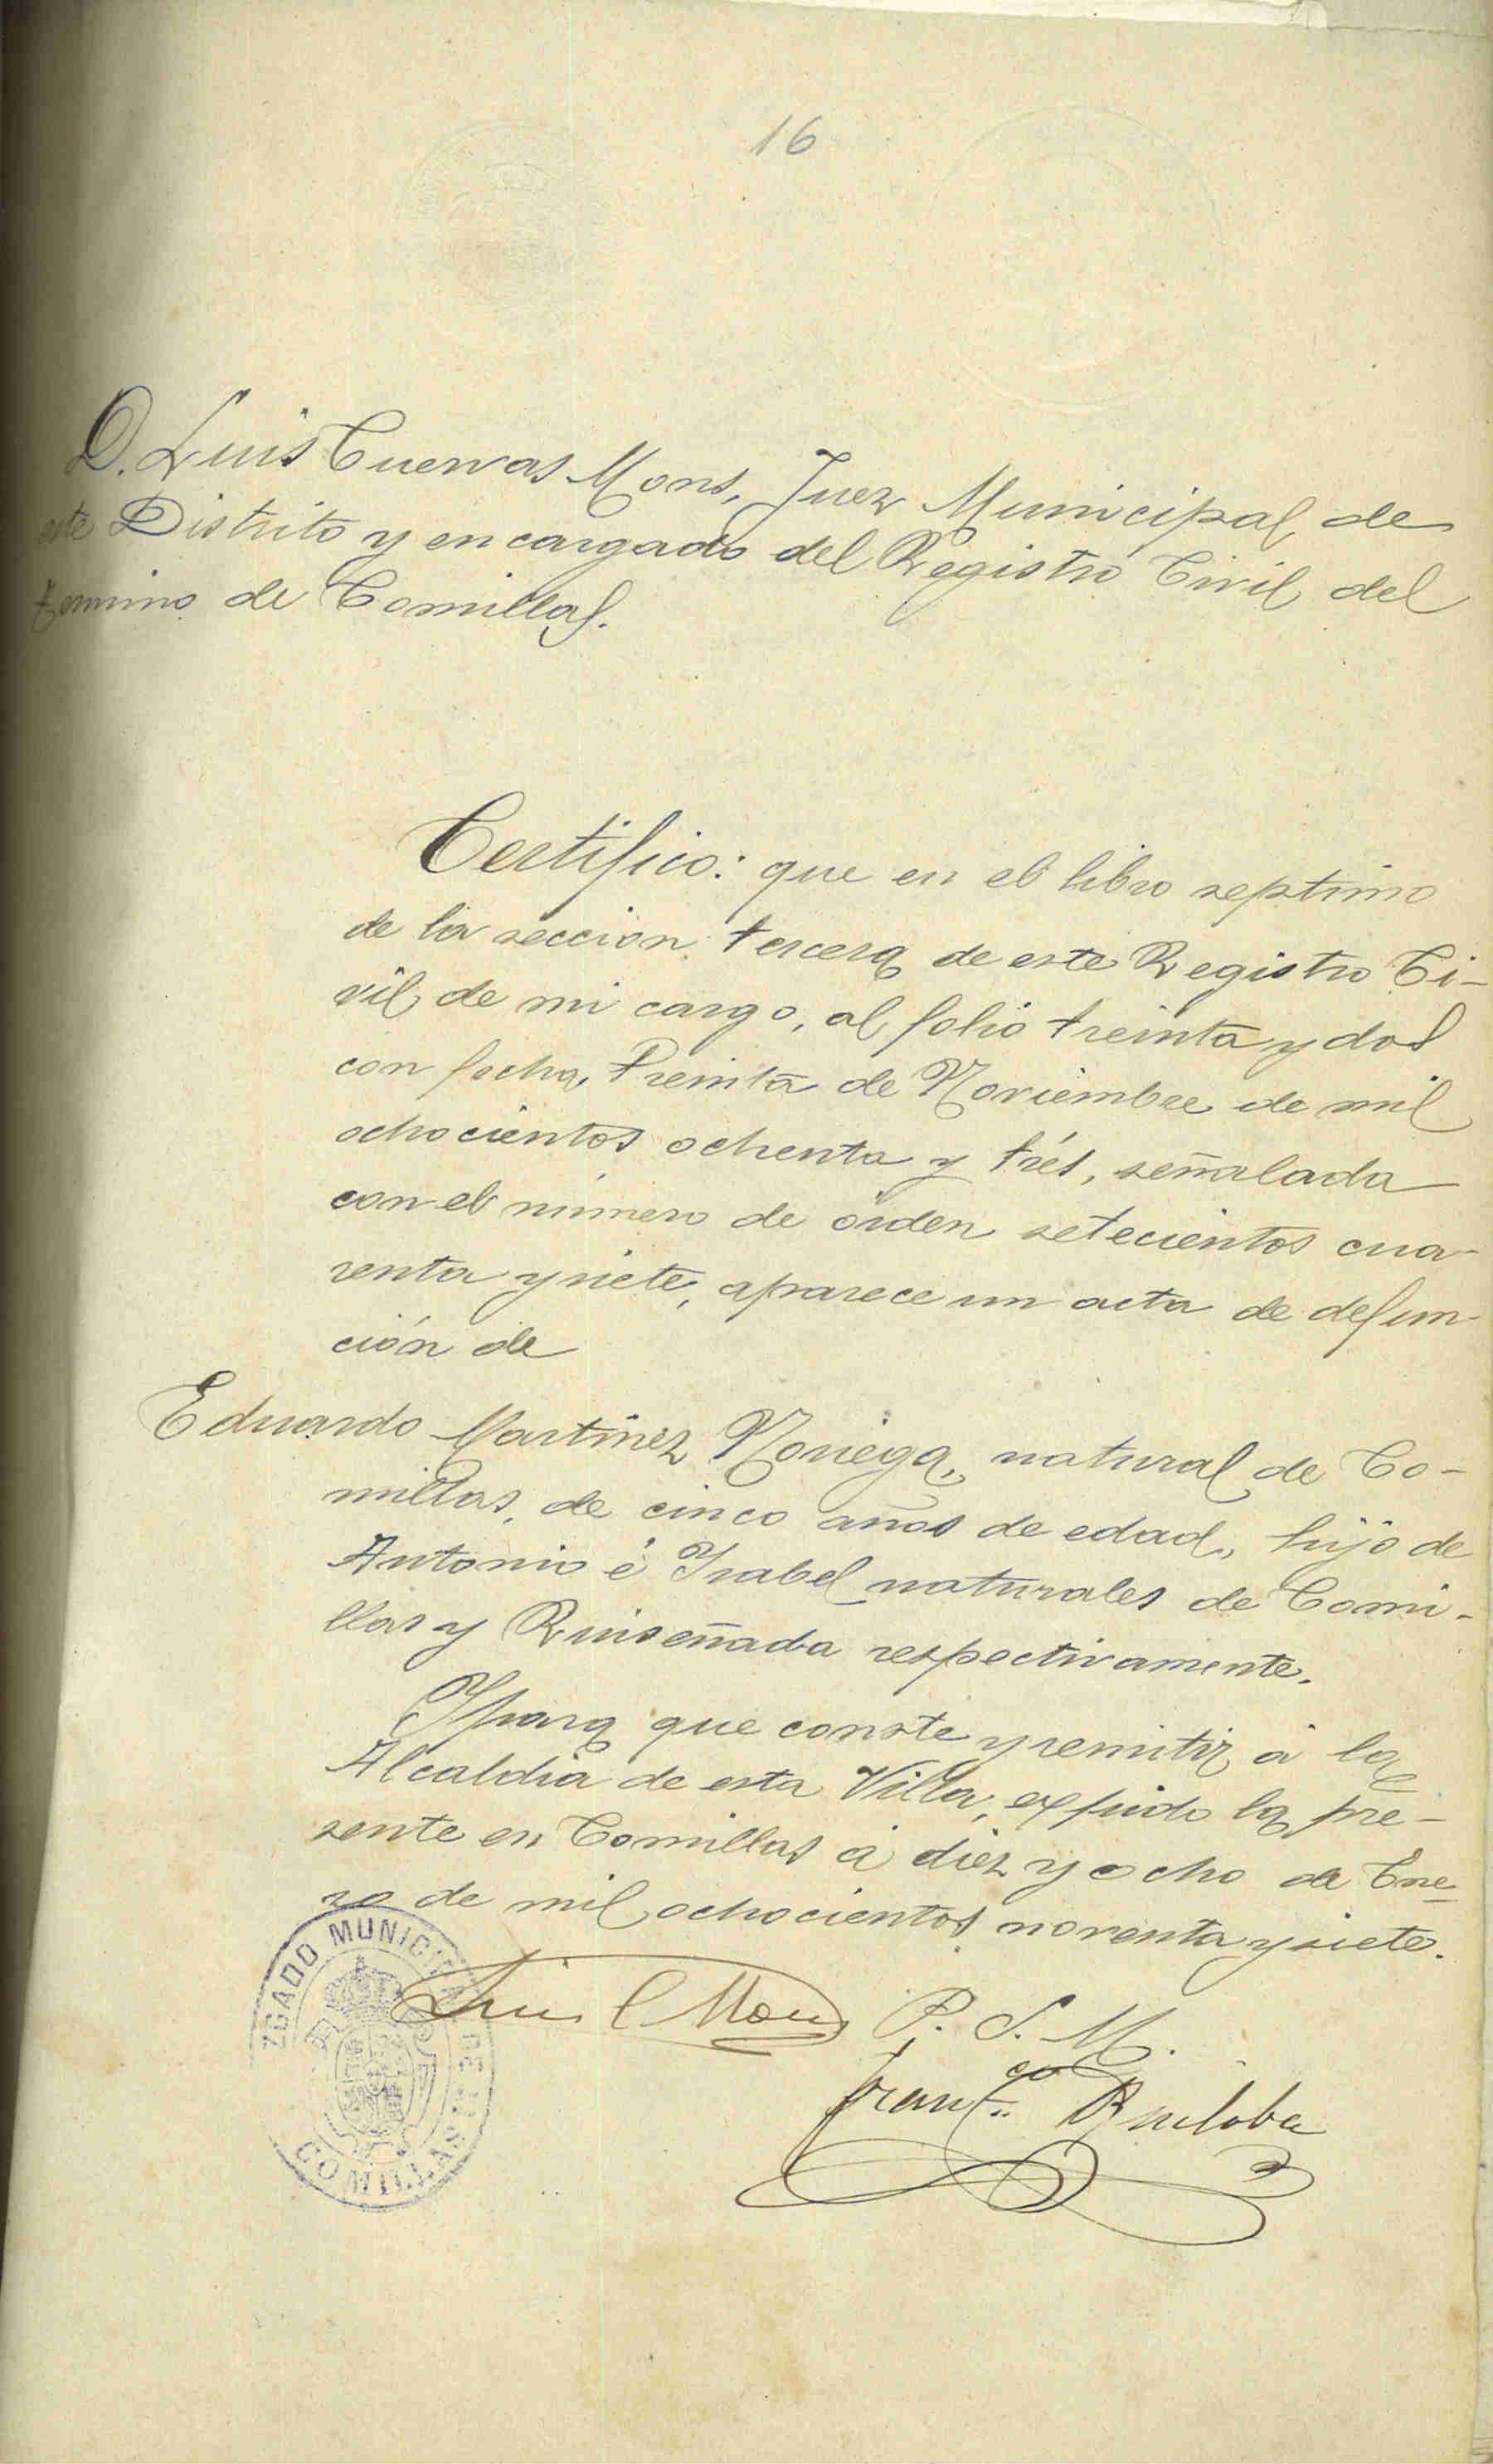 16
D. Luis Cuevas Mons, Juez Municipal de
este Distrito y encargado del Registro Civil del
termino de Comillas.
Certifico: que en el libro septimo
de la seccion tercera de este Registro Ci-
vil de mi cargo, al folio treinta y dos
con fecha treinta de Noviembre de mil
ochocientos ochenta y trés, señalada
con el número de órden setecientos cua-
renta y siete, aparece un acta de defun-
ción de
Eduardo Martinez Noriega, natural de Co-
millas, de cinco años de edad, hijo de
Antonio é Isabel naturales de Comi-
llas y Ruiseñada respectivamente.
Y para que conste y remitir á la
Alcaldia de esta Villa, expido la pre-
sente en Comillas á diez y ocho de Ene-
ro de mil ochocientos noventa y siete.
Luis C Mons P. S. M.
Franco Ruiloba
ZGADO MUNICIPAL DE COMILLAS